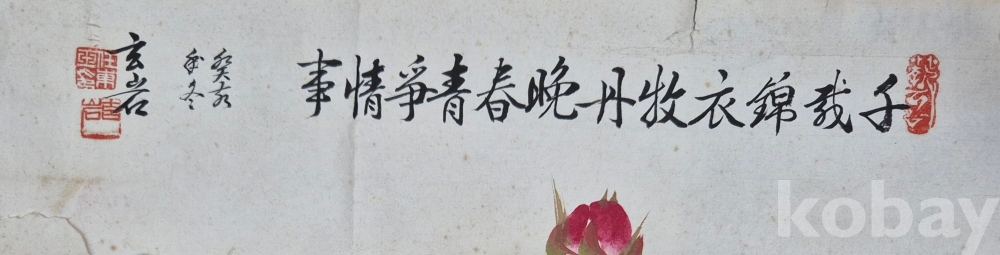 千載錦衣牧丹晩春青爭情事
癸亥
季冬
玄岩
kobay